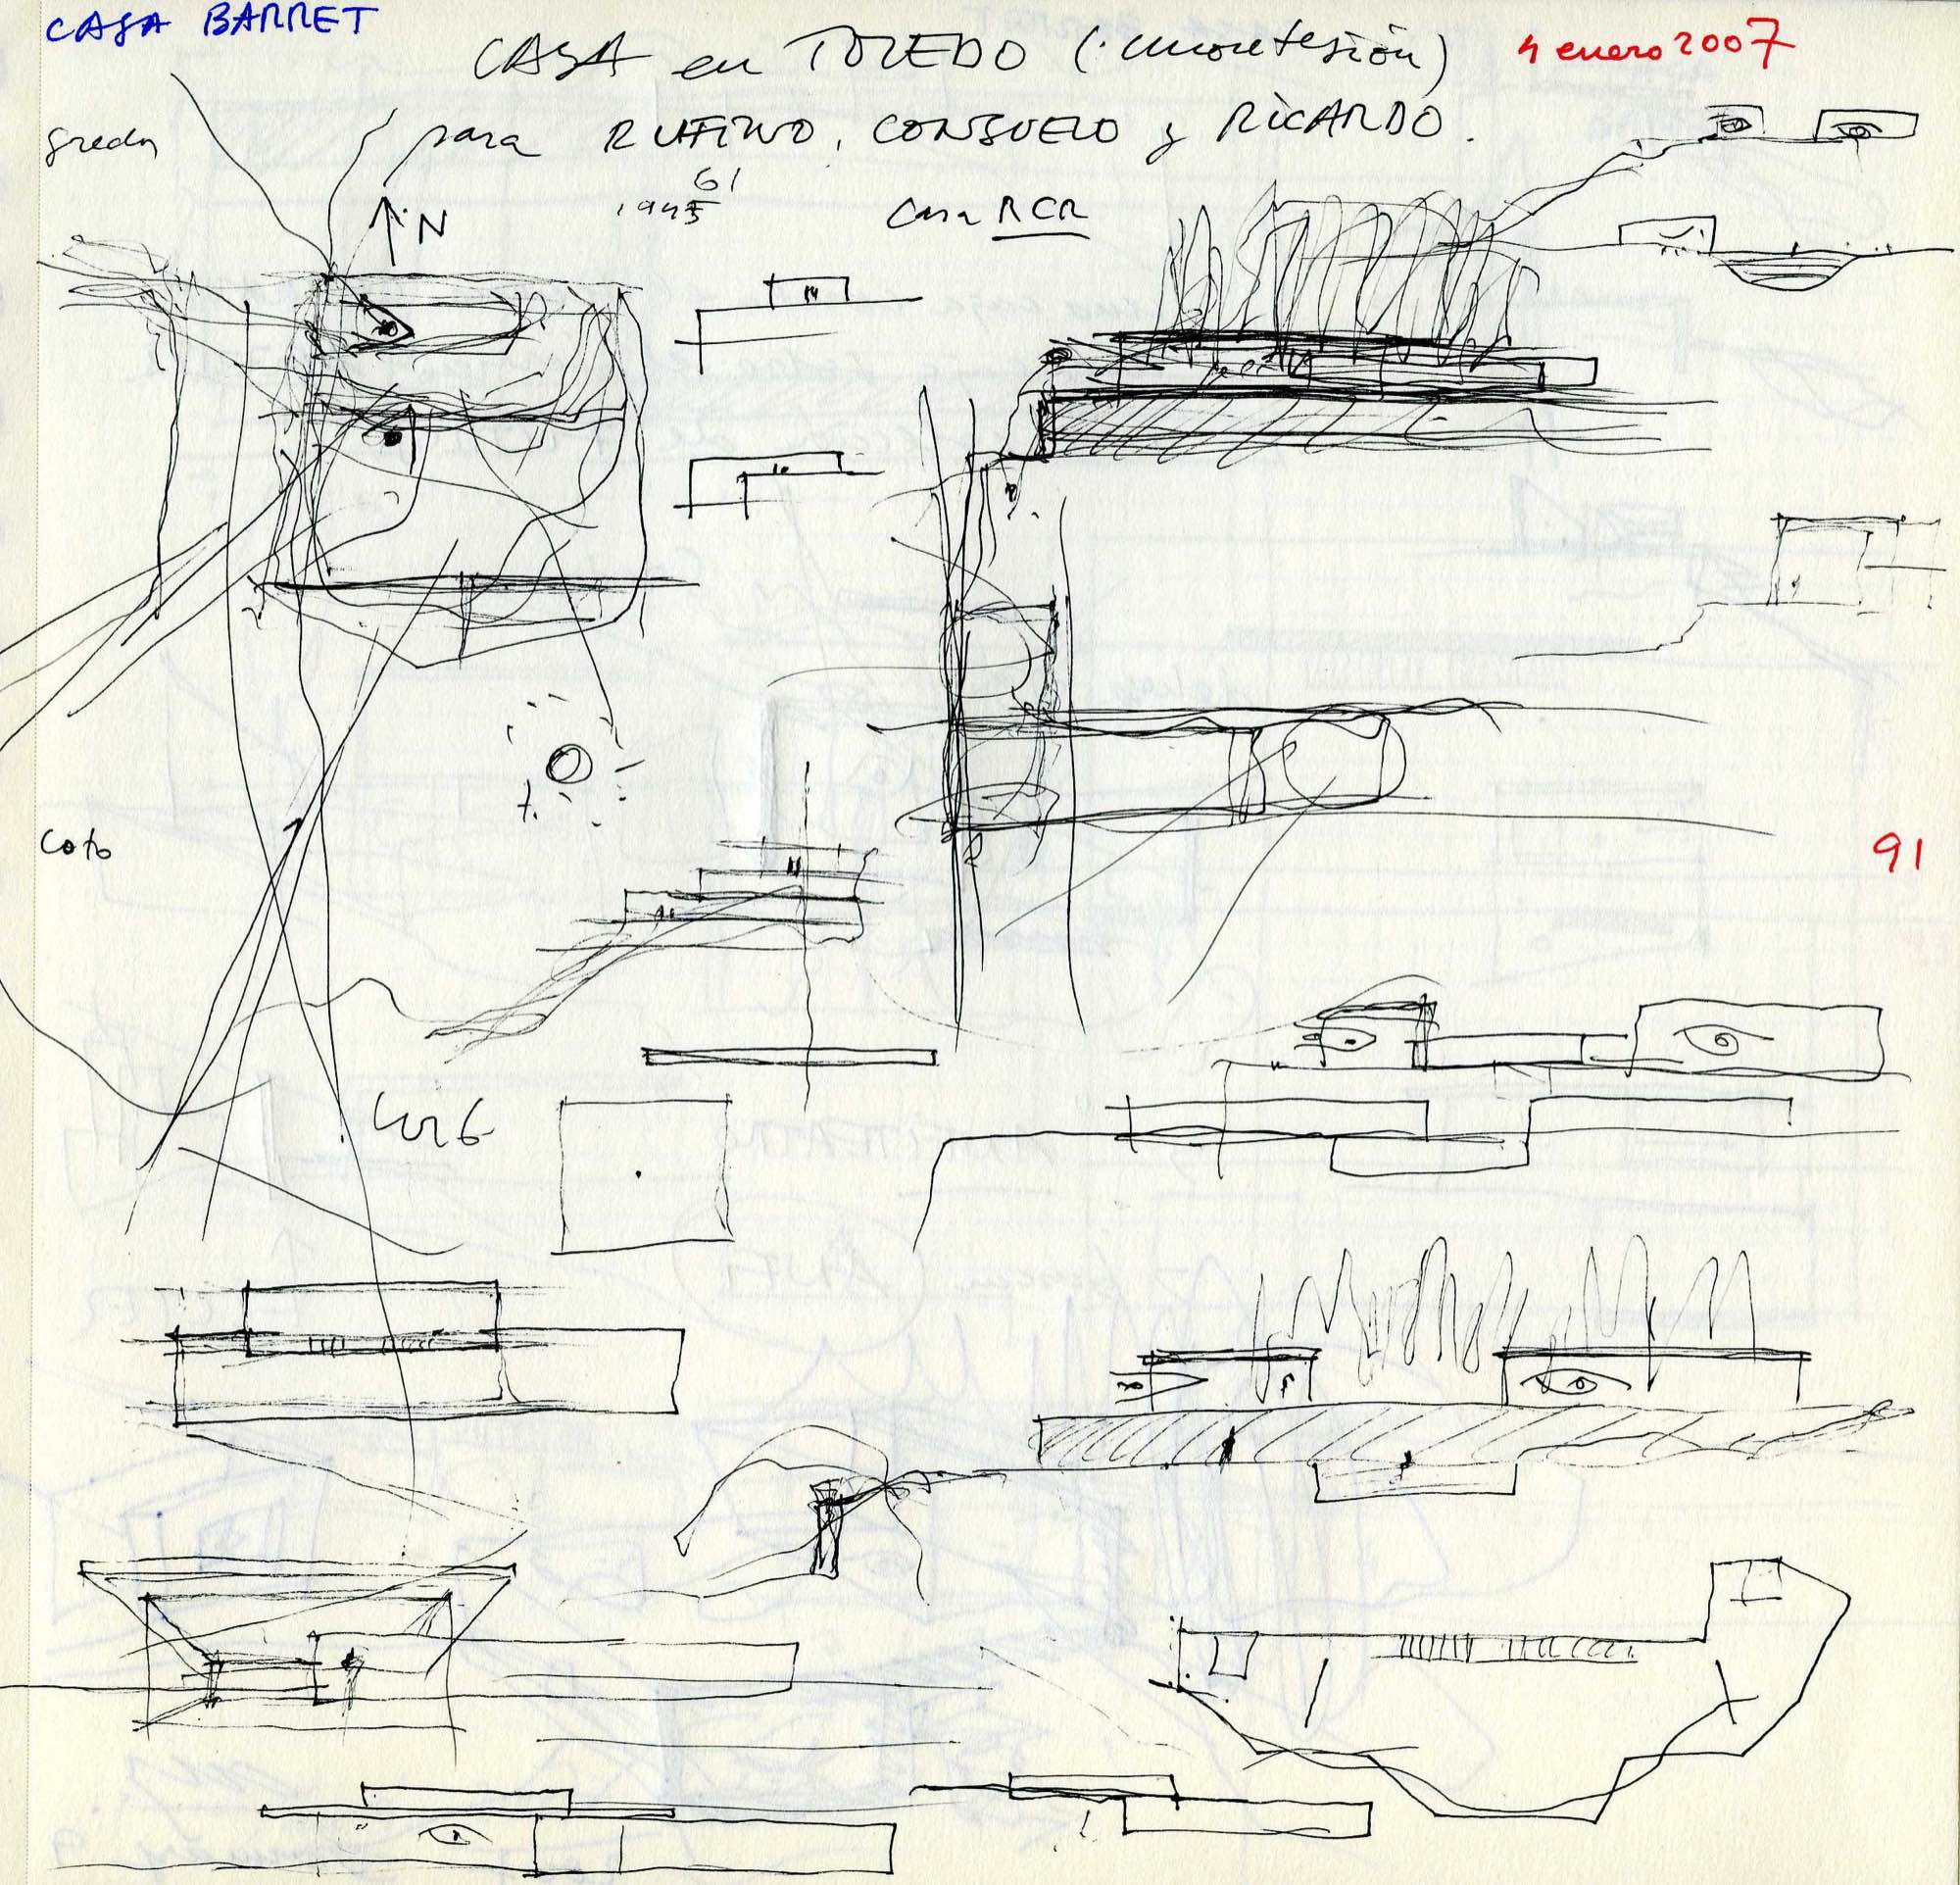 CASA BARRET
CASA en TOLEDO (montesión) 4 enero 2007
para RUFINO, CONSUELO y RICARDO.
gredos
61
1945
casa RCR
N
coto
91